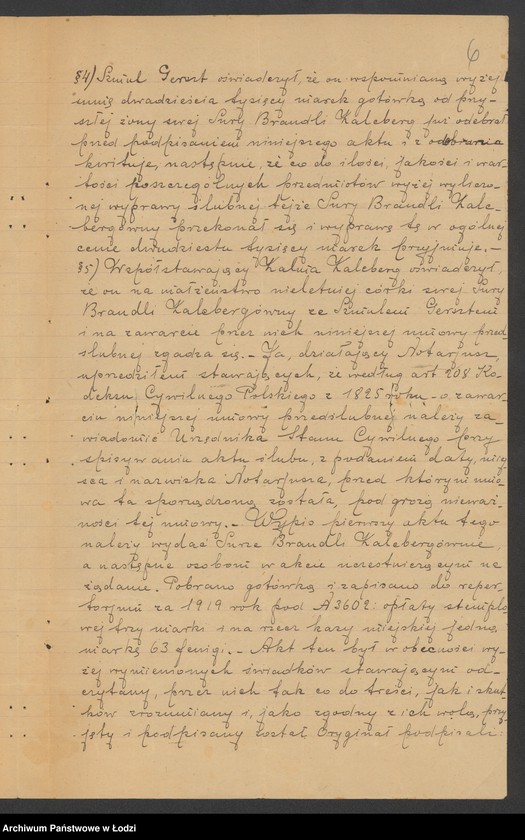 6
§4) Szmul Gerszt oświadczył, że on wspomnianą wyżej
sumę dwadzieścia tysięcy marek gotówką od przy-
szłej żony swej Sury Brandli Kaleberg już odebrał
przed podpisaniem niniejszego aktu i z odebrania
kwituje, następnie, że co do ilości, jakości i war-
tości poszczególnych przedmiotów wyżej wyliczo-
nej wyprawy ślubnej tejże Sury Brandli Kale-
bergówny przekonał się i wyprawę tę w ogólnej
cenie dwudziestu tysięcy marek przyjmuje. -
§5) Współstawający Kalma Kaleberg oświadczył,
że on na małżeństwo nieletniej córki swej Sury
Brandli Kalebergówny ze Szmulem Gersztem
i na zawarcie przez nich niniejszej umowy przed-
ślubnej zgadza się. - Ja, działający Notarjusz,
uprzedziłem stawających, że według art 208 Ko-
deksu Cywilnego Polskiego z 1825 roku - o zawar-
ciu niniejszej umowy przedślubnej należy za-
wiadomić Urzędnika Stanu Cywilnego przy
spisywaniu aktu ślubu, z podaniem daty, miej-
sca i nazwiska Notarjusza, przed którym umo-
wa ta sporządzoną została, pod grozą nieważ-
ności tej umowy. - Wypis pierwszy aktu tego
należy wydać Surze Brandli Kalebergównie,
a następne osobom w akcie uczestniczącym na
żądanie. Pobrano gotówką i zapisano do reper-
torjum za 1919 rok pod № 3602: opłaty stemplo-
wej trzy marki i na rzecz kasy miejskiej jedną
markę 63 fenigi. - Akt ten był w obecności wy-
żej wymienionych świadków stawającym od-
czytany, przez nich tak co do treści, jak i skut-
ków zrozumiany i, jako zgodny z ich wolą, przy-
jęty i podpisany został. Oryginał podpisali:
Archiwum Państwowe w Łodzi